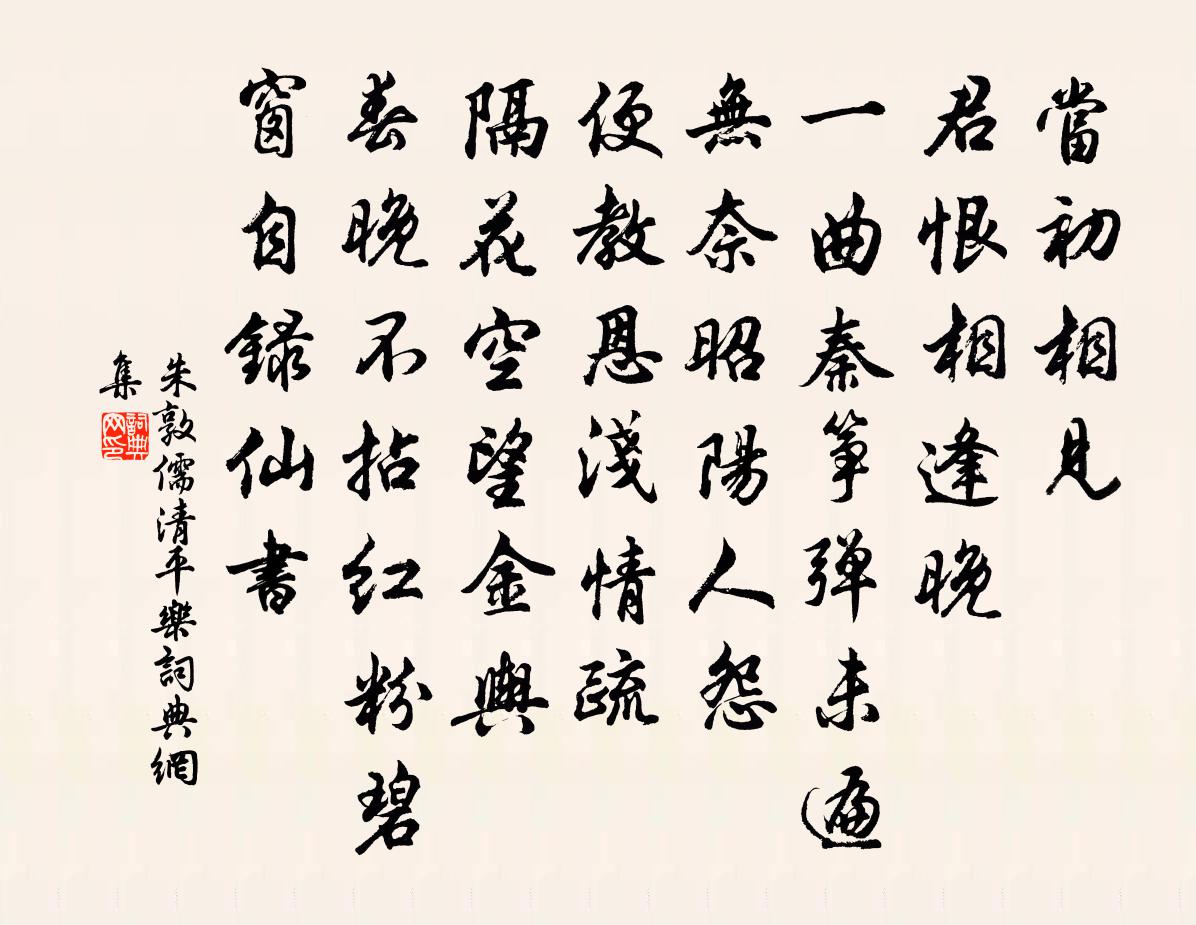 當初相見
君恨相逢晚
一曲秦筝彈未遍
無奈昭陽人怨
便教恩淺情疏
隔花空望金輿
春晚不拈红粉碧
窗自録仙書
朱敦儒清平樂詞典網
集
詞典网印